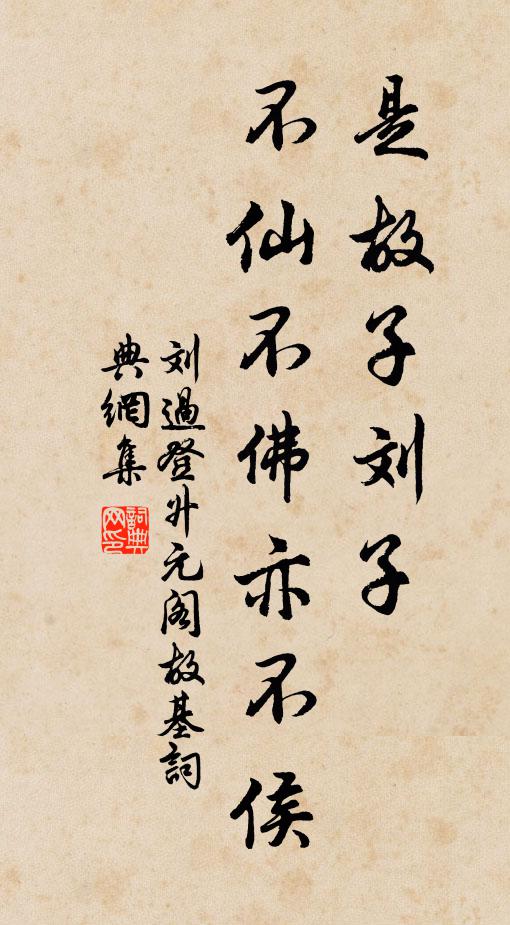 是故子刘子
不仙不佛亦不侯
刘過登升元阁故基詞
典網集
詞典网印